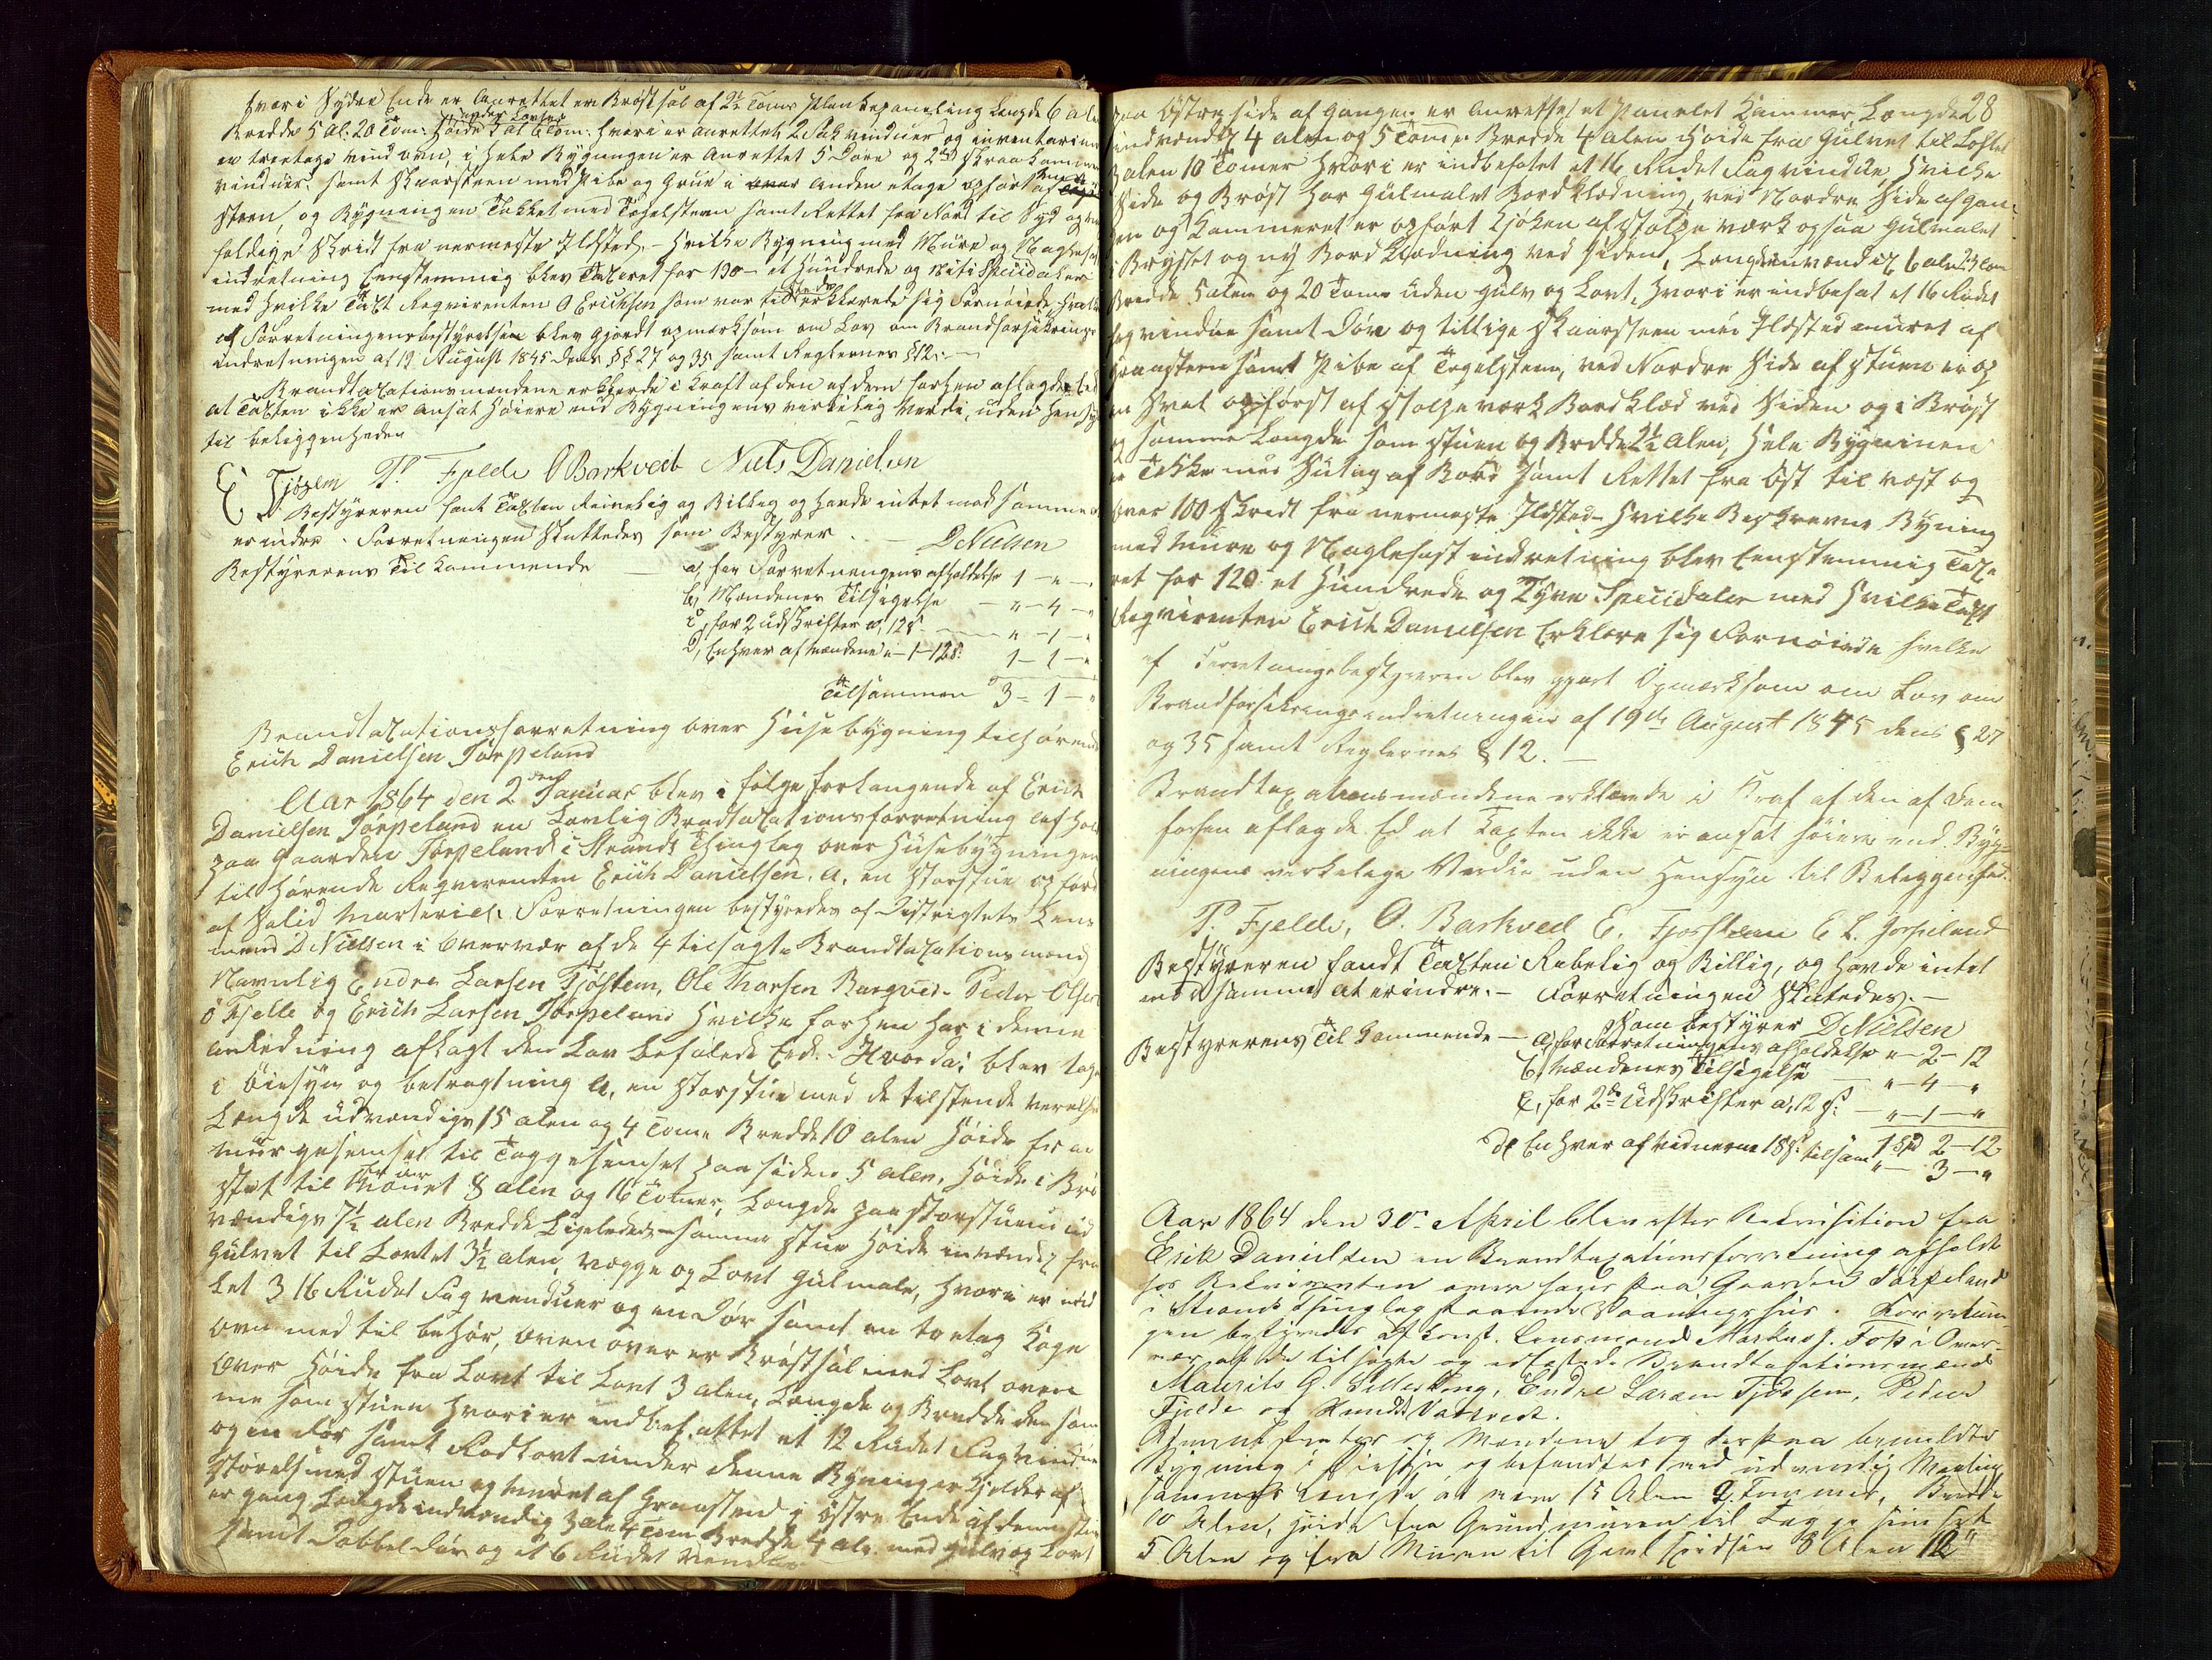 hvori Sydre Ende er Anrettet en Brøstsal af 2½ Toms Plankepaneling Længde 6 al
Bredde 5 al. 20 Tom: Høide under Loftet 3 al 6 Tom: hvori er anrettet 2 Fak vinduer og inventarium
en treetage vind ovn, i hele Bygningen er Anrettet 5 Døre og 2de smaa Kammer
vinduer. samt Skorsteen med Pibe og Grue i anden etage opført af
steen, og Bygningen Tækket med Tegelsteen samt Rettet fra Nord til Syd og
foldige Skridt fra nermeste Ildsted. - Hvilke Bygning med Mure og Naglefast
indretning Eenstemmig blev Taxeret for 190 - et Hundrede og niti Speciedaler
med hvilke Taxt Reqvirenten O Erichsen som var tilstede erklerede sig Fornøiede, hvilke
af Forretningensbestyrelsen blev gjordt opmerksom om Lov om Brandforsikrings
indretningen af 19 August 1845 dens §§ 27 og 35 samt Reglernes § 12. -
Brandtaxationsmændene erklærde i Kraft af den af dem forhen aflagde Eed
at Taxten ikke er ansat høiere end Bygningens virkelig Verdi, uden Hensyn
til beliggenheden
E Tjøsem P. Fjelde O Barkved Niels Danielsen
Bestyreren fant Taxten Rimelig og Billeg og havde intet mod samme
erindre. Forretningen Sluttedes som Bestyrer - DNielsen
Bestyrerens Til Kommende - a) for Forretningens afholdelse 1 - " - "
b) Mændenes Tilsigelse - " - 4 - "
c, for 2 udskrifter a, 12 s - " - 1 - "
d, Enhver af Mændene - 1 - 12 s: 1 - 1 - "
Tilsammen 3 - 1 - "
Brandtaxationsforretning over Husebygning tilhørende
Erich Danielsen Jørpeland
Aar 1864 den 2den Januar blev i følge forlangende af Erich
Danielsen Jørpeland en Lovlig Brandtaxationsforretning afhol
paa Gaarden Jørpeland i Strands Thinglag over Husebygningen
tilhørende Reqvirenten Erich Danielsen. a, en Storstue opført
af Solid Materiel. Forretningen bestyredes af Districtets Lens
mand DNielsen i Overvær af de 4 tilsagte Brandtaxations mænd
Navnlig Endre Larsen Tjøstem, Ole Thorsen Bargved. Peder Olsen
ö Fjelle og Erich Larsen Jørpeland hvilke forhen har i denne
anledning aflagt den Lov befalede Eed. - Hvorda; blev tage
i Øiesyn og betragtning a, en Storstue med de tilstende verelser
Længde udvændigs 15 alen og 4 Tome Bredde 10 alen Høide fra
muur gesemset til Taggesemset paa siden 5 alen, Høide i Brø
stet til Mønet 8 alen og 16 Tomer, Længde paa Storstuens ud
vændigs 7½ alen Bredde Ligeledes - samme Stue Høide invændig fra
Gulvet til Loftet 3½ alen, vægge og Lovt Gulmale, hvori er ind
sat 3 16 Rudet Fag venduer og en Dør samt en to etag Kage
ovn med til behør, oven over er Brøstsal med Lovt oven
over Høide fra Lovt til Lovt 3 alen, Længde og Bredde den sam
me som stuen hvori er indbefattet et 12 Rudet Fagvindue
og en Dør samt Kodlovt under denne Bygning er Kjelder af
størelse med stuen og Muret af Graasteen i Østre Ende af denne stue
er Gang Længde indvendig 3 ale 4 Tom Bredde 4 ale. med gulv og Lovt
samt Dobbel Dør og et 6 Rudet Vendue
28
paa Østreside af Gangen er Anrettet et Panelet Kammer, Længde
indvændig 4 alen og 5 Tome Bredde 4 alen Høide fra Gulvet til Loftet
3 alen 10 Tomer hvori er indbefatet et 16 Rudet Fag vindue, hvilke
Side og Brøst har Gulmalet Bord klædning, ved Nordre Side af Gan-
gen og Kammeret er opført Kjøken af Stolpe værk ogsaa Gulmalet
i Brystet og ny Bord Klædning ved siden, Længdeinvændig 6 alen 3 Tom
Bredde 5 alen og 20 Tome uden Gulv og Lovt, hvori er indbefat et 16 Rudet
fagvindue samt Dør og tillige Skaarsteen med Ildsted muret af
Graasteen samt Pibe af Tegelsteen, ved Nordre Side af Stuen er og
en Sval opførst af Stolpeværk Bordklæd ved Siden og i Brøst
og samme Længde som Stuen og Bredde 2½ Alen, hele Bygninen
er Tække med Sutag af Bord samt Rettet fra Øst til vest og
over 100 Skridt fra nermeste Ildsted - Hvilke Beskrevne Bygning
med Mure og Naglefast indretning blev Eenstemmig Taxe
ret for 120 et Hundrede og Tyve Speciedaler med Hvilke Taxt
Reqvirenten Erich Danielsen Erklære sig Fornøiede hvilke
af Forretningsbestyreren blev gjort Opmærksom om Lov om
Brandforsikringsindretningen af 19de August 1845 dens § 27
og 35 samt Reglernes § 12. -
Brandtaxationsmændene erklærede i Kraf af den af dem
forhen aflagde Ed at Taxten ikke er ansat høiere end Byg-
ningens verkelige Verdie uden Hensyn til Beliggenhed.
P. Fjelde, O. Barkved E. Tjøstem E L. Jørpeland
Bestyreren fandt Taxten Rebelig og Billig, og havde intet
mod samme at erindre. - Forretningen Slutedes. -
Som bestyrer DNielsen
Bestyrerens Til Kommende - a, for Forretningens afholdelse " - 2 - 12
b, Mændenes Tilsigelse - " - 4 - "
c, for 2de udskrifter a, 12 s: - " - 1 - "
tilsam 1 Spd 2 - 12
d, Enhver af vidnerne 18 s. " - 3 - "
Aar 1864 den 30. April blev efter Rekvisition fra
Erik Danielsen en Brandtaxationsforretning afholdt
hos Rekvirenten over hans paa Gaarden Jørpeland
i Strands Thinglag staaende Vaaningshus. Forretnin-
gen bestyredes af Const. Lensmand Markus J. Foss i Over-
vær af de tilsagte og edfæstede Brandtaxationsmænd
Maurits G. Selleskog, Endre Larsen Tjøssem, Peder
Fjelde og Knud Vatsvedt.
Administrator og Mændene tog derpaa bemeldte
Bygning i Øiesyn og befandtes ved udvendig Maaling
sammes Længde at være 15 Alen 2 Tommer, Bredde
10 Alen, Høide fra Grundmuren til Taggesimset
5 Alen og fra Muren til Gavlspidsen 8 Alen 16"